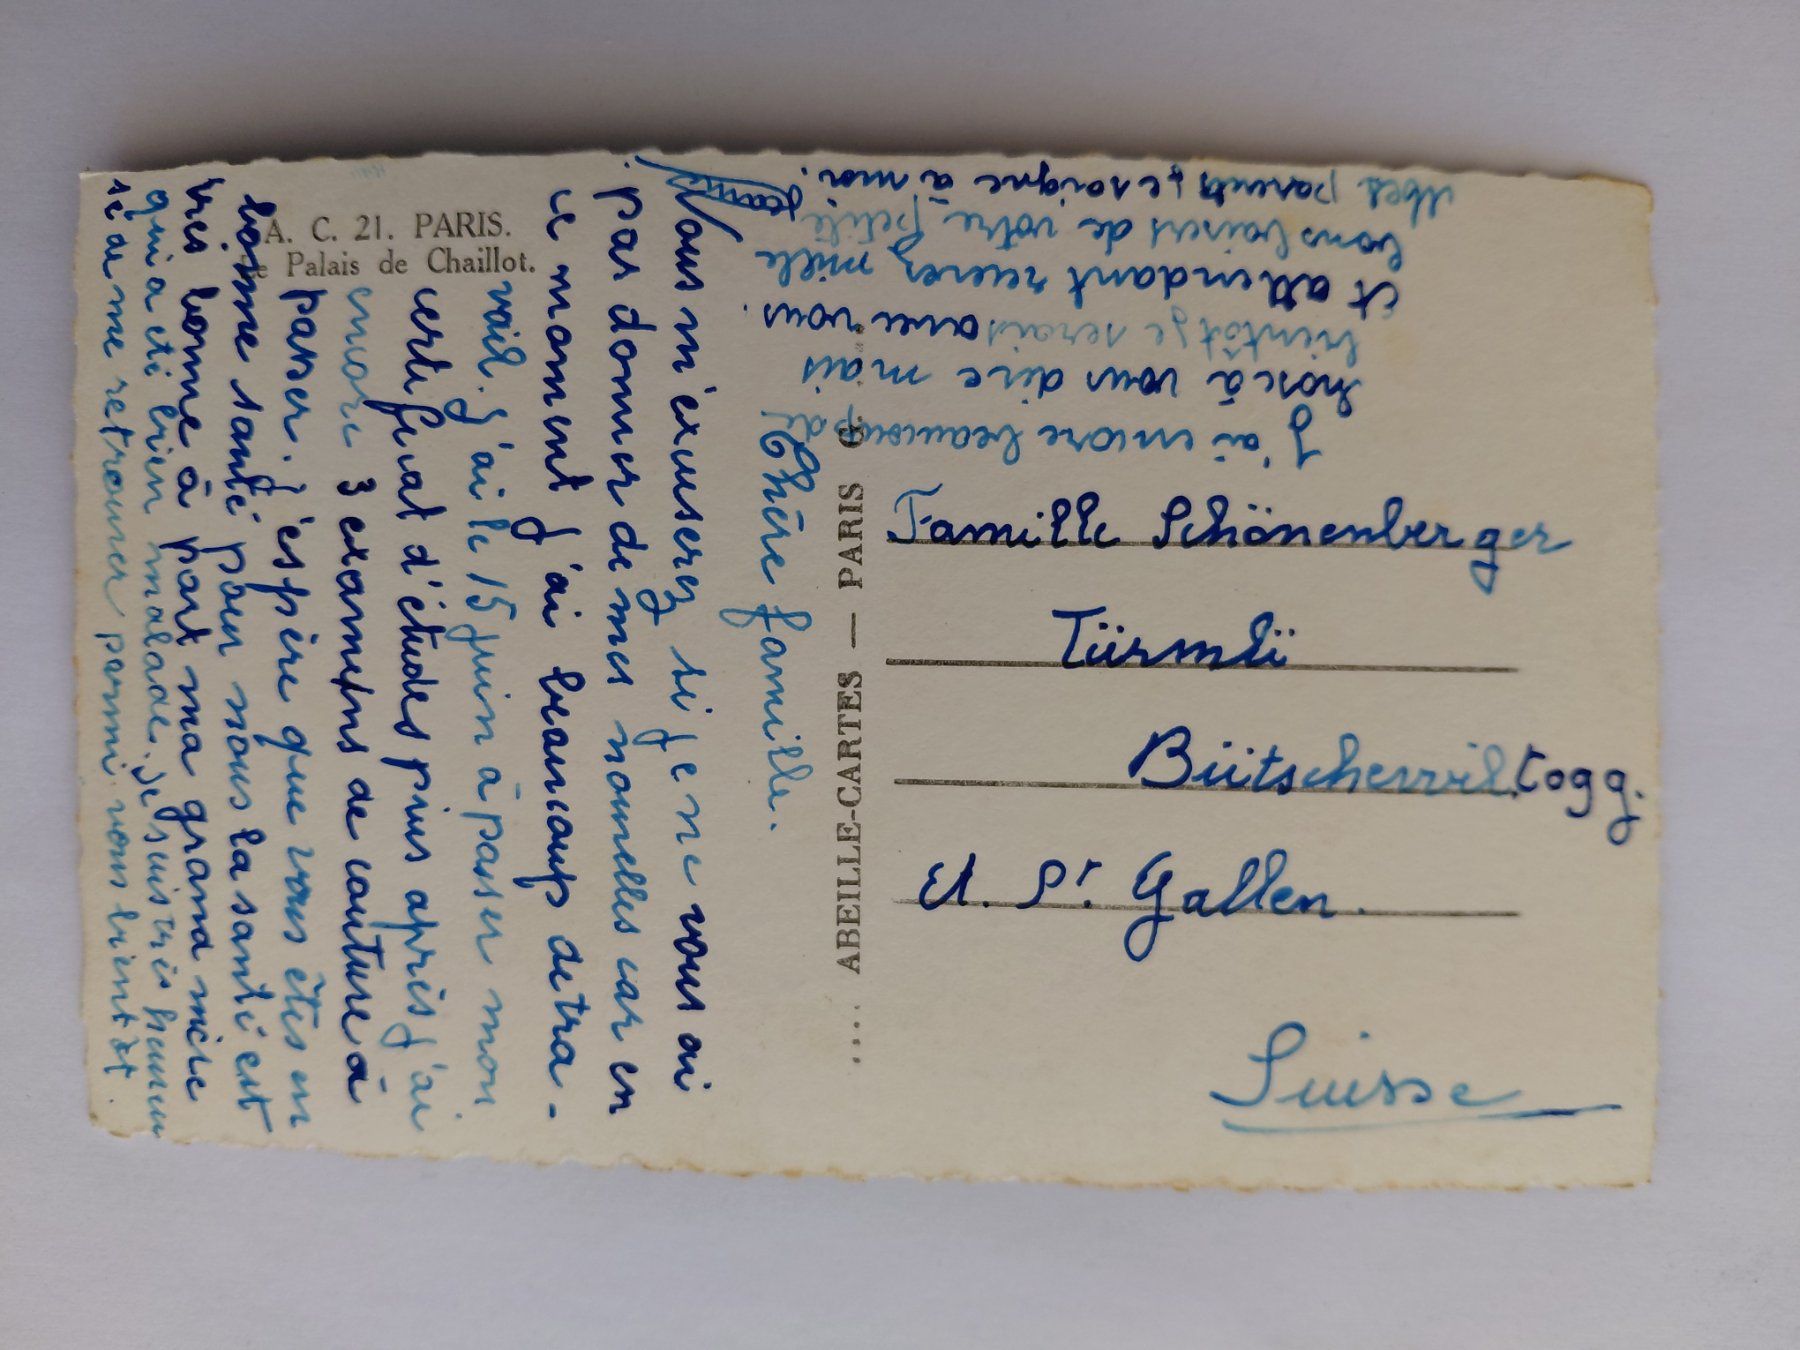 A. C. 21. PARIS.
Le Palais de Chaillot.
ABEILLE-CARTES — PARIS
Chère famille.
Vous m'éxuserez si je ne vous ai
pas donner de mes nouvelles car en
ce moment j'ai beaucoup de tra-
vail. J'ai le 15 juin à passer mon
certificat d'études puis après j'ai
encore 3 examens de couture à
passer. j'éspère que vous êtes en
bonne santé pour nous la santé est
très bonne à part ma grand mère
qui a été bien malade. Je suis très heureu
se de me retrouver parmi vous bientôt.
J'ai encore beaucoup de
chose à vous dire mais
bientôt je serais avec vous.
Et attendant recevez mille
bons baisers de votre petite
Mes parents se soigne à moi.
Famille Schönenberger
Türmli
Bütschwil. Togg.
St. Gallen.
Suisse